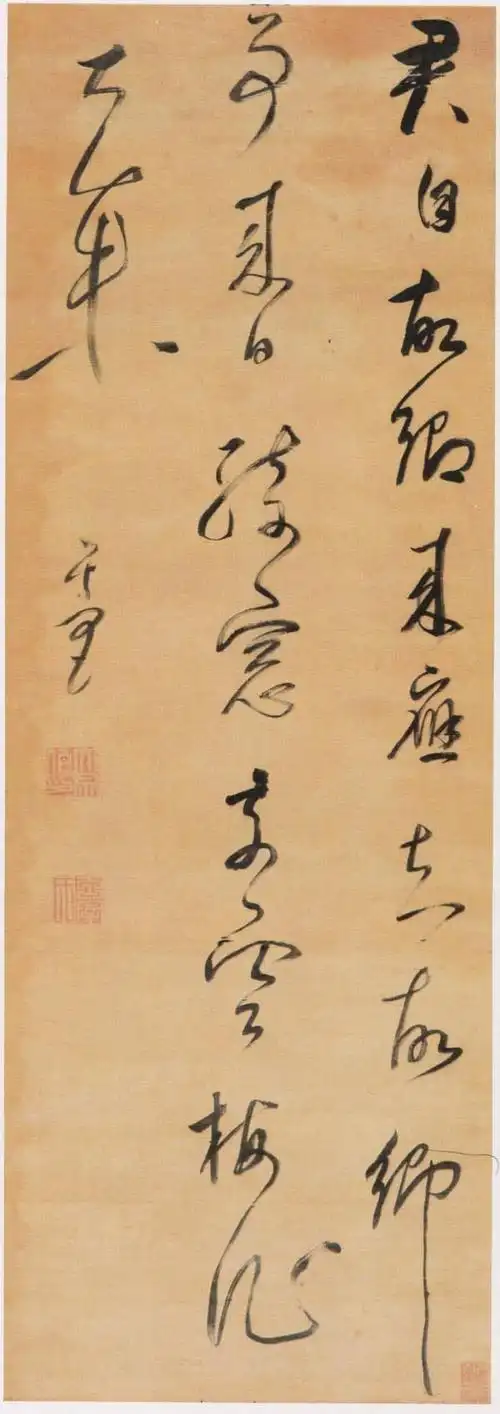 君自故鄉來應知故鄉
事來日綺窓前寒梅著
花未
其昌